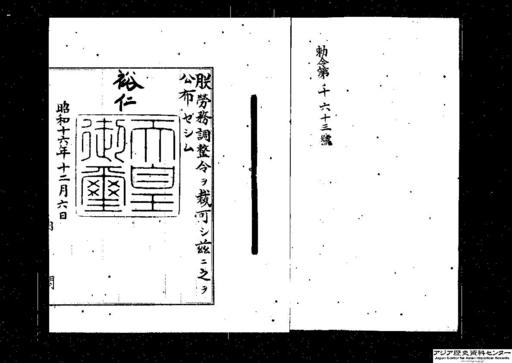 勅令第千六十三號
朕勞務調整令ヲ裁可シ茲ニ之ヲ
公布セシム
裕仁
天皇
御璽
昭和十六年十二月六日
アジア歴史資料センター
Japan Center for Asian Historical Records